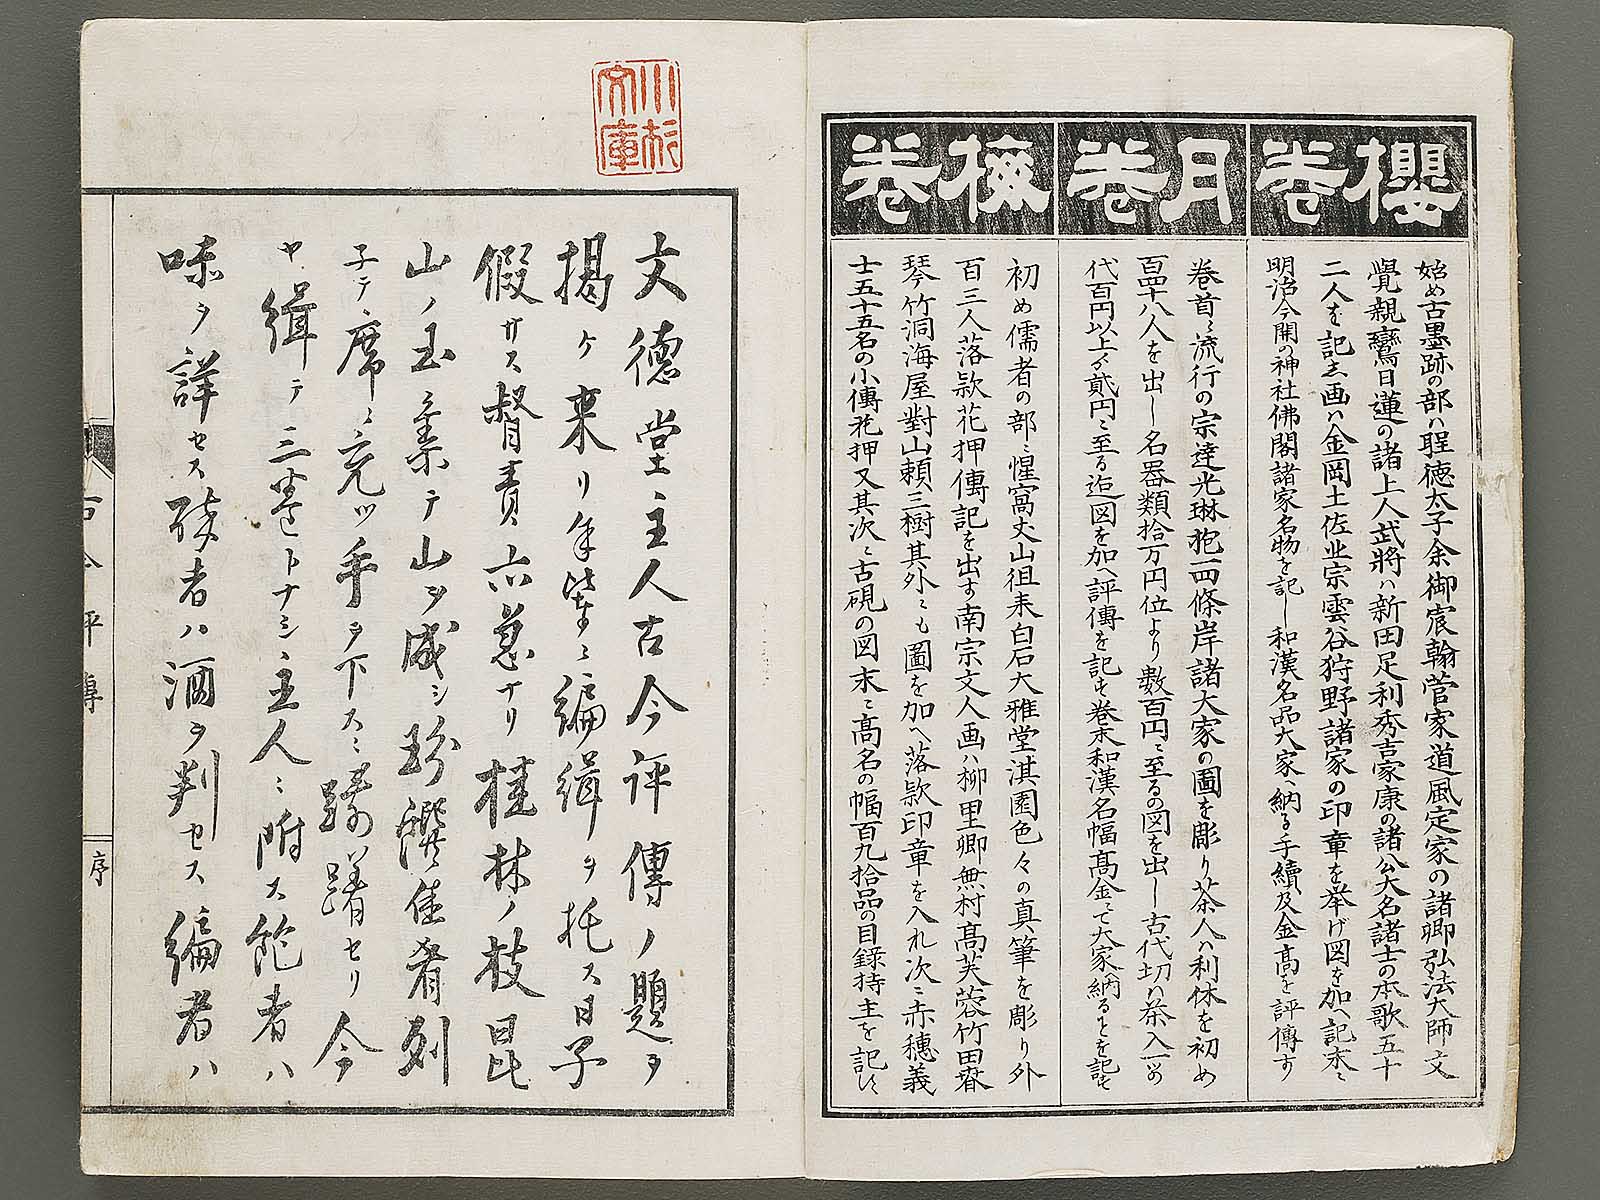 櫻卷
始め古墨跡の部ハ聖徳太子余御宸翰菅家道風定家の諸卿弘法大師文
覺親鸞日蓮の諸上人武將ハ新田足利秀吉家康の諸公大名諸士の本歌五十
二人を記し画ハ金岡土佐光宗雲谷狩野諸家の印章を挙げ図を加へ記末ニ
明治今開の神社佛閣諸家名物を記し和漢名品大家へ納る手續及金高を評傳す
月卷
卷首ニ流行の宗達光琳抱一四條岸諸大家の圖を彫り茶人ハ利休を初め
百四十八人を出し名器類拾万円位より数百円ニ至るの図を出し古代切ハ茶入一の
代百円以上ゟ貳円ニ至る迄図を加へ評傳を記す卷末和漢名幅高金ニて大家納るを記す
梅卷
初め儒者の部ニ惺窩丈山徂来白石大雅堂淇園色々の真筆を彫り外
百三人落款花押傳記を出す南宗文人画ハ柳里卿無村高芙蓉竹田春
琴竹洞海屋對山頼三樹其外ニも圖を加へ落款印章を入れ次ニ赤穂義
士五十五名の小傳花押又其次ニ古硯の図末ニ高名の幅百九拾品の目録持主を記ス
川杉
文庫
文德堂主人古今評傳ノ題ヲ
揭ケ来リ余輩ニ編緝ヲ托ス日子
假サス督責六急ナリ桂林ノ枝昆
山ノ玉集テ山ヲ成シ珍饌佳肴列
子テ席ニ充ツ手ヲ下スニ躊躇セリ今
ヤ緝テ三卷トナシ主人ニ附ス能者ハ
味ヲ詳セス醉者ハ酒ヲ判セス編者ハ
古今評傳
序